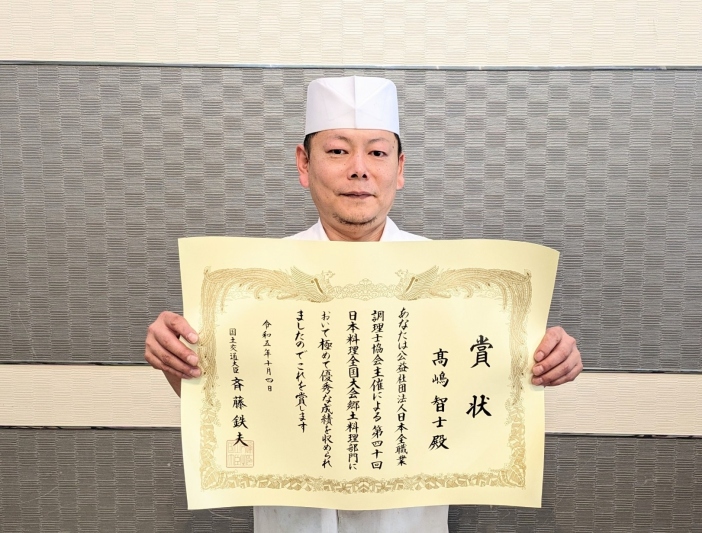 賞状
髙嶋智士殿
あなたは公益社団法人日本全職業
調理士協会主催による第四十回
日本料理全国大会郷土料理部門に
おいて極めて優秀な成績を収められ
ましたのでこれを賞します
令和五年十月四日
国土交通大臣 斉藤鉄夫